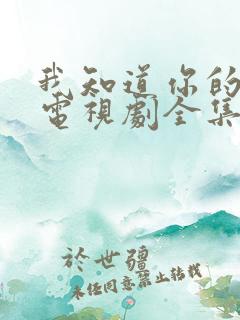 我知道你的
電視劇全集
於世疆
未经同意禁止转载